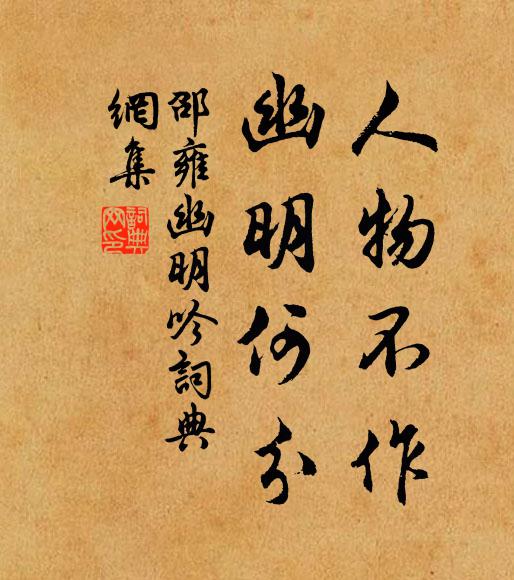 人物不作
幽明何分
邵雍幽明吟詞典
網集
詞典
网印